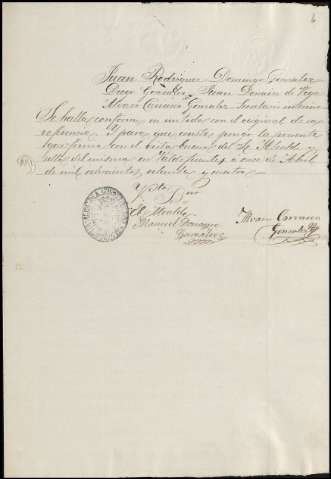 Juan Rodriguez Domingo Gonzalez
Diego Gonzalez Juan Donaire de Vega
Alvaro Carrasco Gonzalez Secretario
Se halla conforme en un todo con el original de su
referencia. Y para que conste pongo la presente
que firmo con el visto bueno del Sr. Alcalde y
sello del mismo en Valdefuentes á once de Abril
de mil ochocientos setenta y cuatro.
Vto. Bno
El Alcalde
Manuel Donaire
Gonzalez
Alvaro Carrasco
Gonzalez